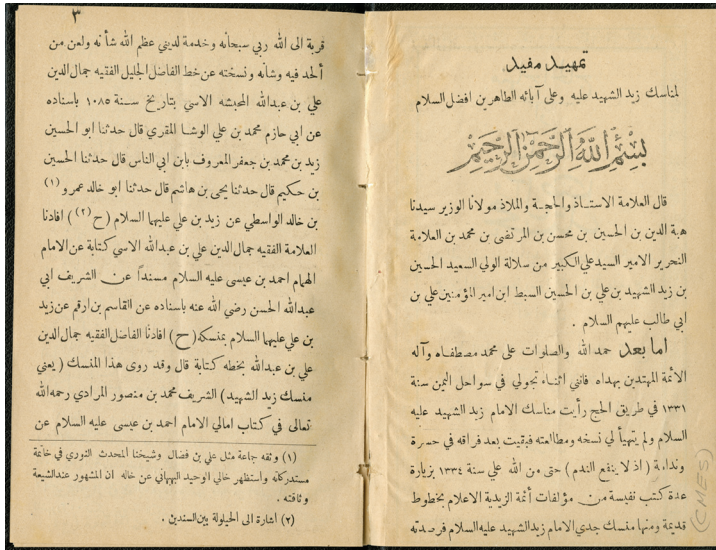 تمهيد مفيد
لمناسك زيد الشهيد عليه وعلى آبائه الطاهرين افضل السلام
بسم الله الرحمن الرحيم
قال العلامة الاستاذ والحجة والملاذ مولانا الوزير سيدنا
هبة الدين بن الحسين بن محسن بن المرتضى بن محمد بن العلامة
النحرير الامير السيد علي الكبير من سلالة الولي السعيد الحسين
بن زيد الشهيد بن علي بن الحسين السبط ابن امير المؤمنين علي بن
ابي طالب عليهم السلام .
اما بعد حمد الله والصلوات على محمد مصطفاه وآله
الأئمة المهتدين بهداه فانني اثناء تجولي في سواحل اليمن سنة
١٣٣١ في طريق الحج رأيت مناسك الامام زيد الشهيد عليه
السلام ولم يتهيأ لي نسخه ومطالعته فبقيت بعد فراقه في حسرة
وندامة ( اذ لا ينفع الندم ) حتى من الله علي سنة ١٣٣٤ بزيارة
عدة كتب نفيسة من مؤلفات أئمة الزيدية الاعلام بخطوط
قديمة ومنها منسك جدي الامام زيد الشهيد عليه السلام فرصدته
(CMES)
٣
قربة الى الله ربي سبحانه وخدمة لديني عظم الله شأنه ولعن من
ألحد فيه وشانه ونسخته عن خط الفاضل الجليل الفقيه جمال الدين
علي بن عبدالله المحبشه الاسي بتاريخ سنة ١٠٨٥ باسناده
عن ابي حازم محمد بن علي الوشا المقري قال حدثنا ابو الحسين
زيد بن محمد بن جعفر المعروف بابن ابي الناس قال حدثنا الحسين
بن حكيم قال حدثنا يحيى بن هاشم قال حدثنا ابو خالد عمرو (١)
بن خالد الواسطي عن زيد بن علي عليهما السلام ( ح (٢) ) افادنا
العلامة الفقيه جمال الدين علي بن عبدالله الاسي كتابة عن الامام
الهمام احمد بن عيسى عليه السلام مسنداً عن الشريف ابي
عبدالله الحسن رضي الله عنه باسناده عن القاسم بن ارقم عن زيد
بن علي عليهما السلام بمنسكه ( ح ) افادنا الفاضل الفقيه جمال الدين
علي بن عبدالله بخطه كتابة قال وقد روى هذا المنسك ( يعني
منسك زيد الشهيد ) الشريف محمد بن منصور المرادي رحمه الله
تعالى في كتاب امالي الامام احمد بن عيسى عليه السلام عن
(١) وثقه جماعة مثل علي بن فضال وشيخنا المحدث النوري في خاتمة
مستدركاته واستظهر خالي الوحيد البهبهاني عن خاله ان المشهور عند الشيعة
وثاقته .
(٢) أشارة الى الحيلولة بين السندين .